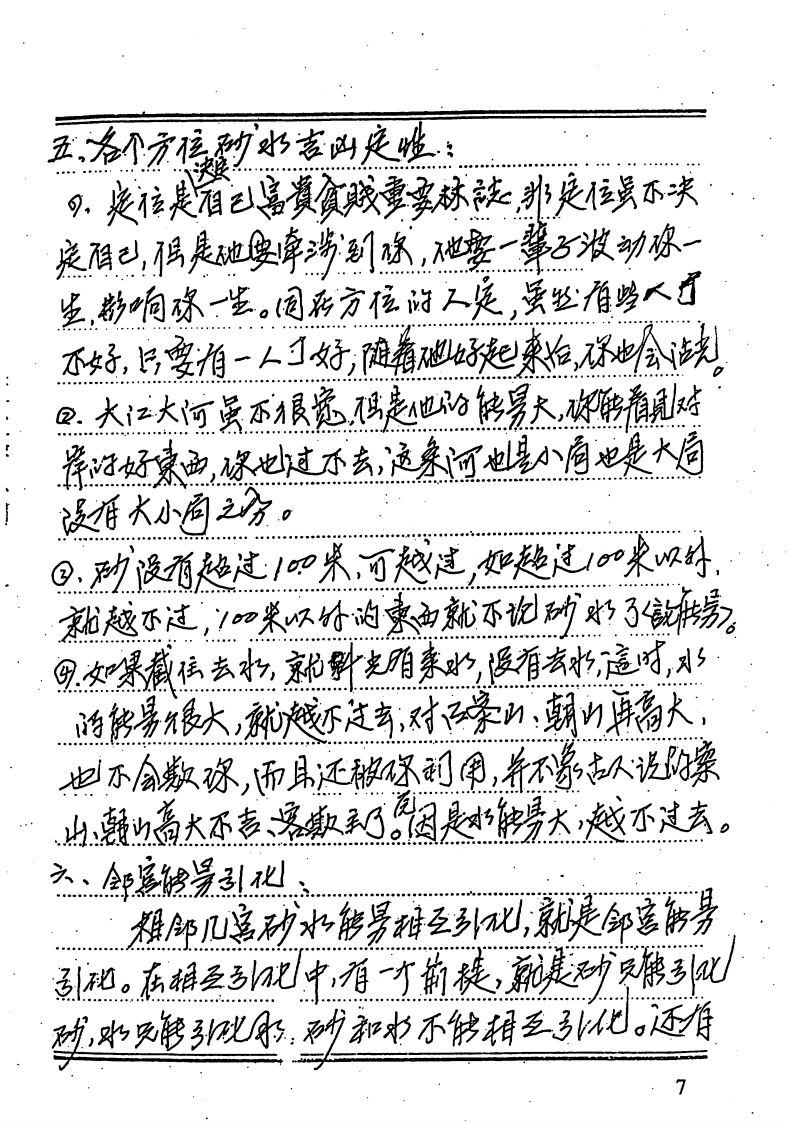 五、各个方位砂水吉凶定性：
①、定位是决定自己富貴貧賤重要标誌，非定位虽不决
定自己，但是他要牵涉到你，他要一輩子波动你一
生，影响你一生。同在方位的人定，虽然有些人丁
不好，只要有一人丁好，随着他好起来后，你也会沾光。
②、大江大河虽不很宽，但是他的能量大，你能看見对
岸的好東西，你也过不去，这条河也是小局也是大局
没有大小局之分。
③、砂没有超过100米，可越过，如超过100米以外，
就越不过，100米以外的東西就不论砂水了（說能量）。
④、如果截住去水，就斗光有来水，没有去水，這时，水
的能量很大，就越不过去，对面案山、朝山再高大，
也不会欺你，而且还被你利用，并不象古人说的案
山、朝山高大不吉、客欺主了。因是水能量大，越不过去。
六、邻宫能量引化：
相邻几宫砂水能量相互引化，就是邻宫能量
引化。在相互引化中，有一个前提，就是砂只能引化
砂，水只能引化水，砂和水不能相互引化。还有
7